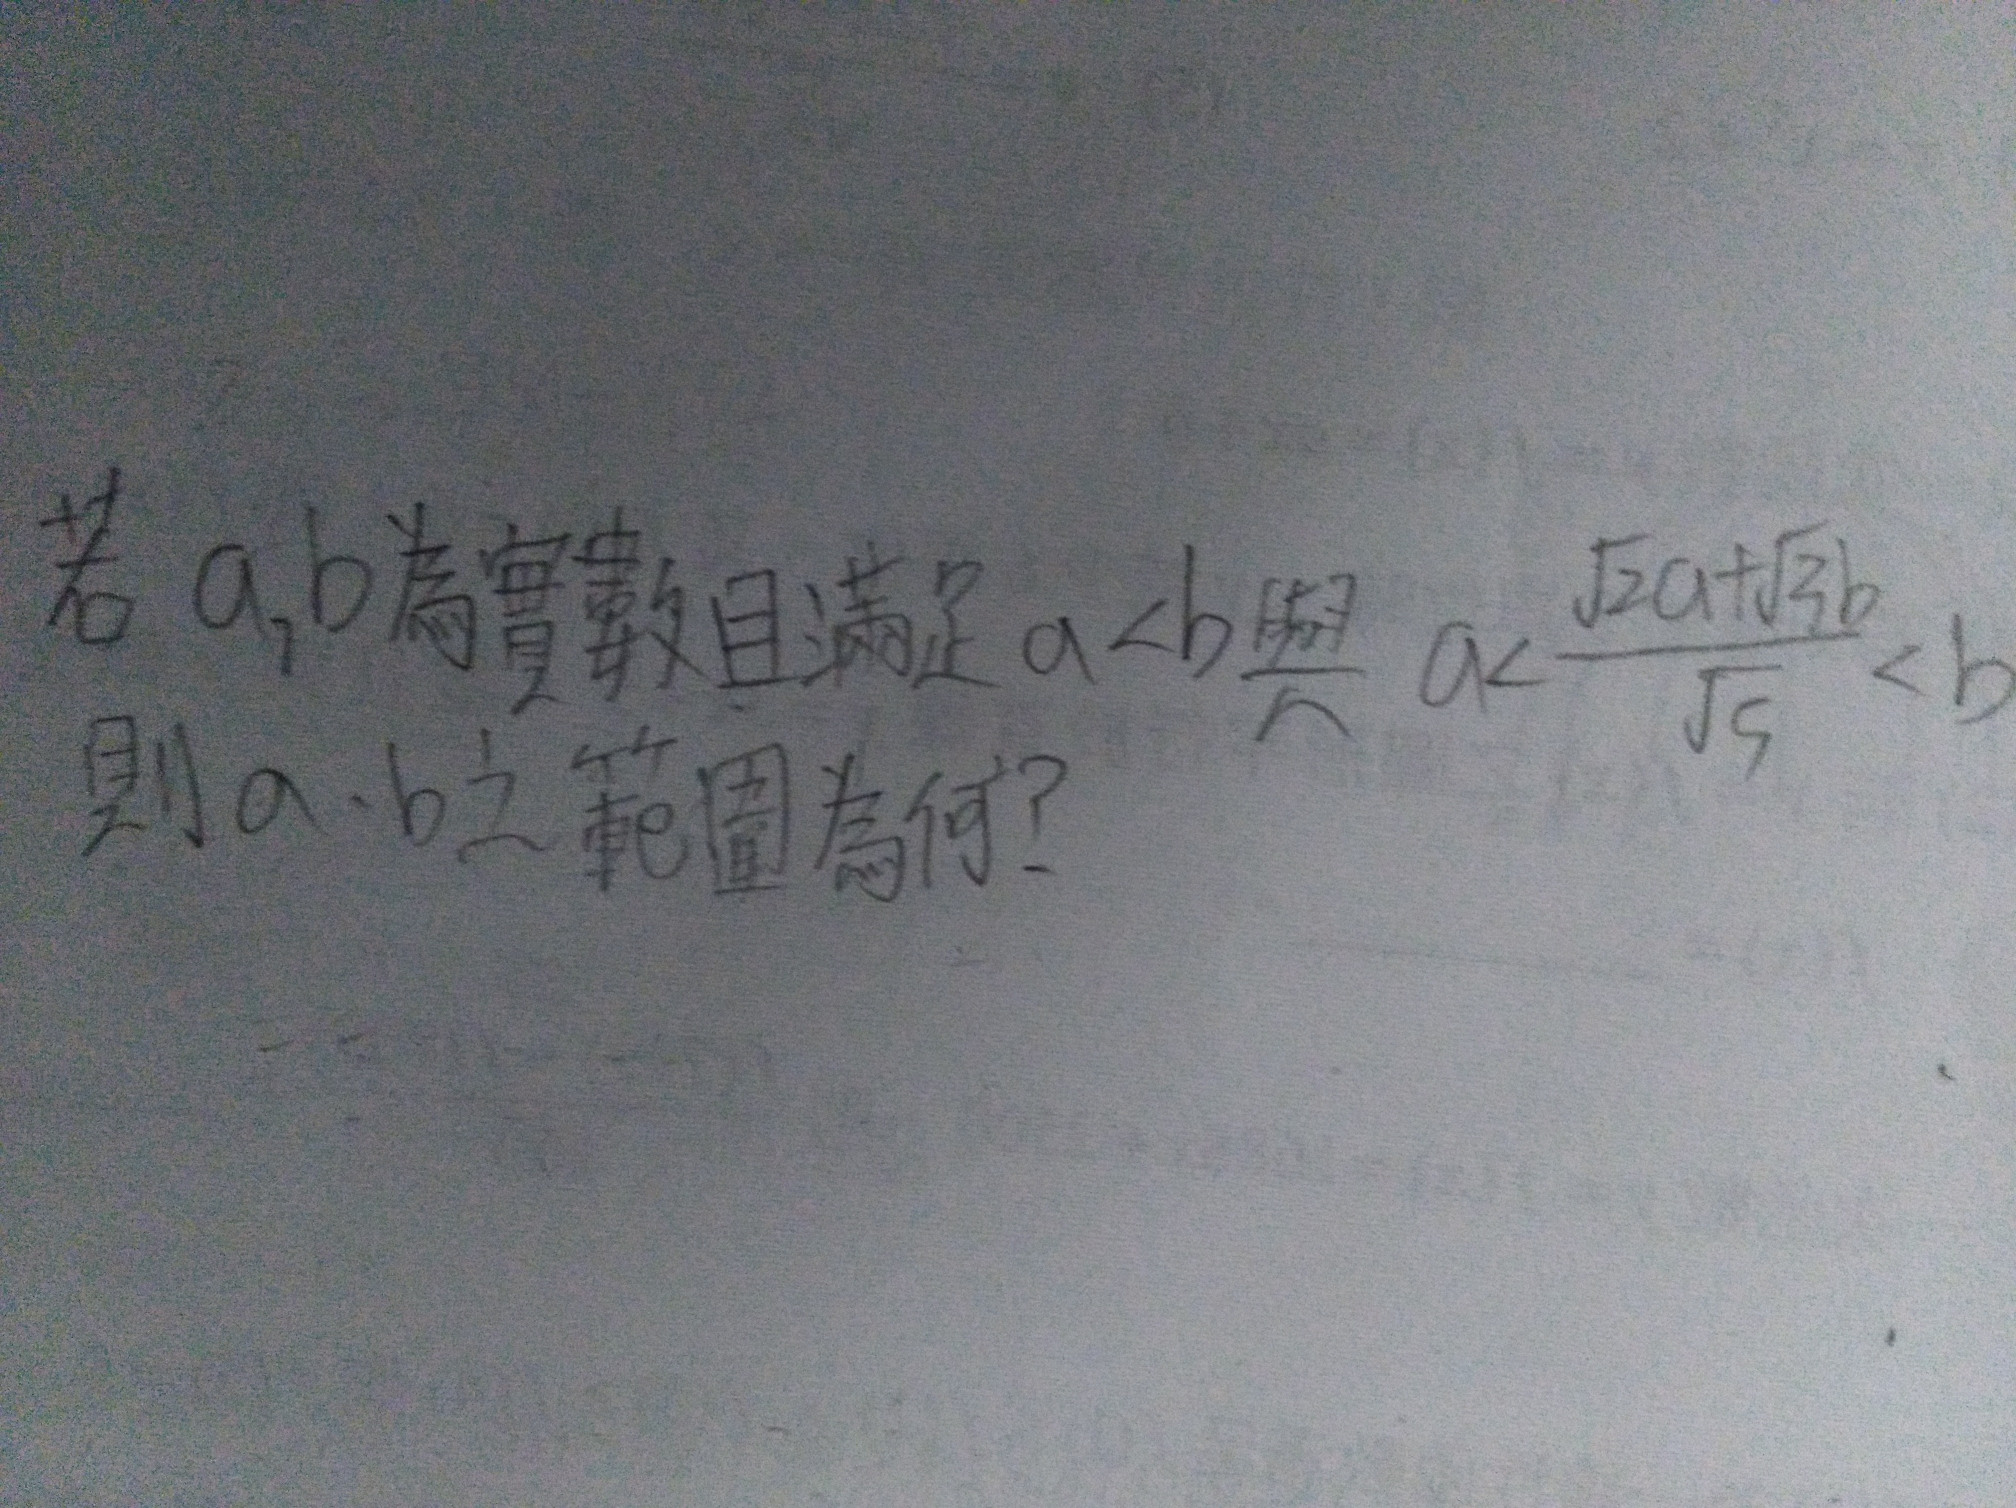 若 a,b為實數且滿足 a<b與 a<(√2a+√3b)/√5<b
則 a·b之範圍為何?